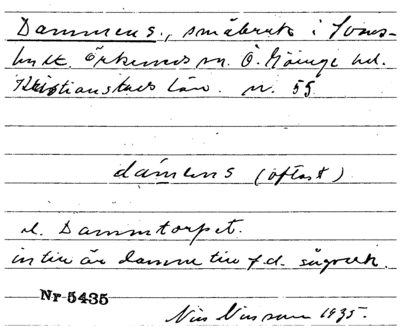 Dammens, småbruk i Svens-
hult. Örkeneds sn. Ö. Göinge hd.
Kristianstads län. nr. 55
dámens (oftast)
el. Dammtorpet.
intill är damme till f.d. sågverk.
Nr 5435
Nils Nilsson 1935.